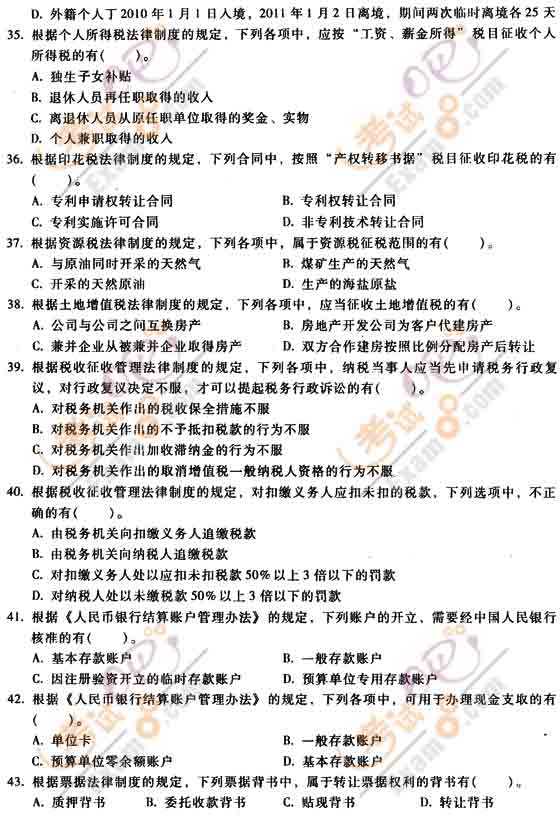 D. 外籍个人丁 2010 年 1 月 1 日入境，2011 年 1 月 2 日离境，期间两次临时离境各 25 天
35. 根据个人所得税法律制度的规定，下列各项中，应按“工资、薪金所得”税目征收个人
所得税的有(　　)。
A. 独生子女补贴
B. 退休人员再任职取得的收入
C. 离退休人员从原任职单位取得的奖金、实物
D. 个人兼职取得的收入
36. 根据印花税法律制度的规定，下列合同中，按照“产权转移书据”税目征收印花税的有
(　　)。
A. 专利申请权转让合同 B. 专利权转让合同
C. 专利实施许可合同 D. 非专利技术转让合同
37. 根据资源税法律制度的规定，下列各项中，属于资源税征税范围的有(　　)。
A. 与原油同时开采的天然气 B. 煤矿生产的天然气
C. 开采的天然原油 D. 生产的海盐原盐
38. 根据土地增值税法律制度的规定，下列各项中，应当征收土地增值税的有(　　)。
A. 公司与公司之间互换房产 B. 房地产开发公司为客户代建房产
C. 兼并企业从被兼并企业取得房产 D. 双方合作建房按照比例分配房产后转让
39. 根据税收征收管理法律制度的规定，下列各项中，纳税当事人应当先申请税务行政复
议，对行政复议决定不服，才可以提起税务行政诉讼的有(　　)。
A. 对税务机关作出的税收保全措施不服
B. 对税务机关作出的不予抵扣税款的行为不服
C. 对税务机关作出加收滞纳金的行为不服
D. 对税务机关作出的取消增值税一般纳税人资格的行为不服
40. 根据税收征收管理法律制度的规定，对扣缴义务人应扣未扣的税款，下列选项中，不正
确的有(　　)。
A. 由税务机关向扣缴义务人追缴税款
B. 由税务机关向纳税人追缴税款
C. 对扣缴义务人处以应扣未扣税款 50% 以上 3 倍以下的罚款
D. 对纳税人处以未缴税款 50% 以上 3 倍以下的罚款
41. 根据《人民币银行结算账户管理办法》的规定，下列账户的开立，需要经中国人民银行
核准的有(　　)。
A. 基本存款账户 B. 一般存款账户
C. 因注册验资开立的临时存款账户 D. 预算单位专用存款账户
42. 根据《人民币银行结算账户管理办法》的规定，下列各项中，可用于办理现金支取的有
(　　)。
A. 单位卡 B. 一般存款账户
C. 预算单位零余额账户 D. 基本存款账户
43. 根据票据法律制度的规定，下列票据背书中，属于转让票据权利的背书有(　　)。
A. 质押背书 B. 委托收款背书 C. 贴现背书 D. 转让背书